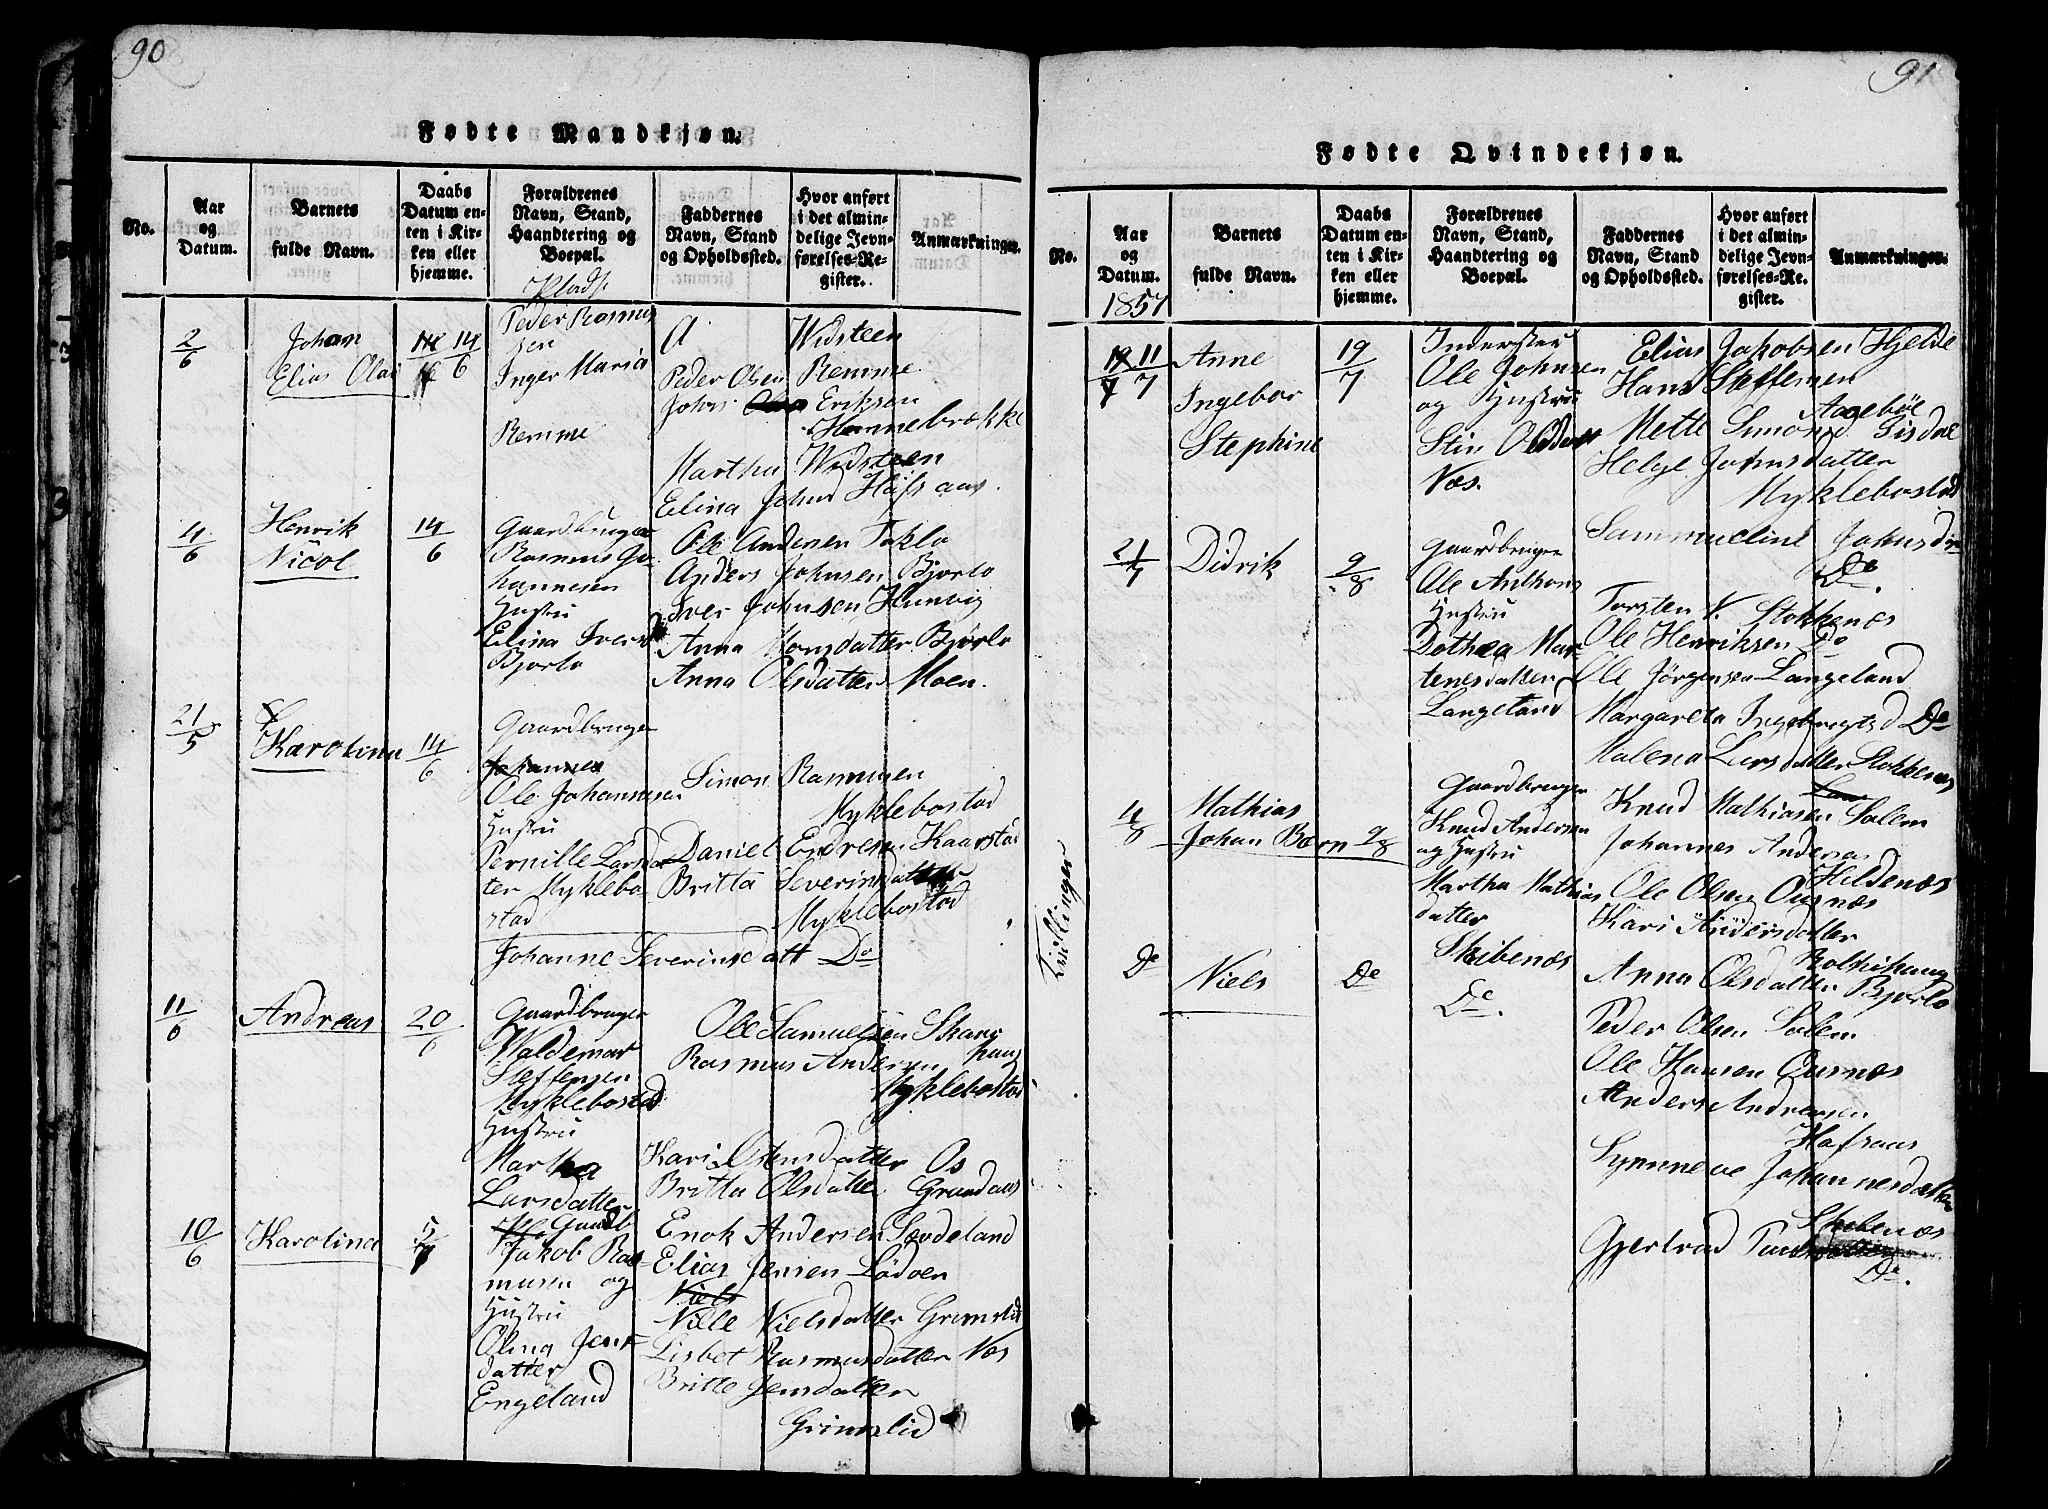 90
Fødte Mandkjøn.
No.
Aar
og
Datum.
Barnets
fulde Navn.
Daabs
Datum en-
ten i Kir-
ken eller
hjemme.
Forældrenes
Navn, Stand,
Haandtering og
Boepæl.
Faddernes
Navn, Stand
og Opholdssted.
Hvor anført
i det almin-
delige Jevn-
førelses-Re-
gister.
Anmærkninger.
2/6
Johan
Elias Olai
14/6
Plads
Peder Rasmus
sen
Inger Maria
Remme
A Widsteen
Peder Olsen Remme
Johs Eriksen
Hennebrække
Martha Widsteen
Elina Johnd Hafsaas.
4/6
Henrik
Nicol
14/6
Gaardbruger
Rasmus Jo-
hannesen
Hustru
Elina Iversd
Bjørlo
Ole Andersen Taklo
Anders Johnsen Bjorlo
Iver Johnsen Hunvig
Anna Monsdatter Bjørlo
Anna Olsdatter Moen.
21/5
Karolina
14/6
Gaardbruger
Johannes
Ole Johannesen
Hustru
Pernille Larsdat
ter Myklebo-
stad
Simon Rasmusen
Myklebostad
Daniel Endresen Kaarstad
Britta Severinsdatter
Myklebostad
Johanne Severinsdatt Do
11/6
Andreas
20/6
Gaardbruger
Waldemar
Steffensen
Myklebostad
Hustru
Martha
Larsdatter
Ole Samuelsen Skaar
haug
Rasmus Andersen
Myklebostad
Kari Ostensdatter Os
Britta Olsdatter Grundaas
10/6
Karolina
5/7
Gaardb
Jakob Ras-
musen og
Hustru
Olina Jens-
datter
Engeland
Enok Andersen Sævdeland
Elias Jensen Lødøen
Niels
Nille Nielsdatter Grimslid
Lisbet Rasmusdatter Næs
Britte Jensdatter
Grimslid
91
Fødte Qvindekjøn.
No.
Aar
og
Datum.
1857
Barnets
fulde Navn.
Daabs
Datum en-
ten i Kir-
ken eller
hjemme.
Forældrenes
Navn, Stand,
Haandtering og
Boepæl.
Faddernes
Navn, Stand
og Opholdssted.
Hvor anført
i det almin-
delige Jevn-
førelses-Re-
gister.
Anmærkninger.
11/7
Anne
Ingebor
Stephine
19/7
Inderster
Ole Johnsen
og Hustru
Stin Olsdatt
Næs.
Elias Jakobsen Hjelde
Hans Steffensen
Aagebøe
Mette Simonsd Gisdal
Helge Johnsdatter
Myklebostad
Sammueline Johnsdtr
Do.
21/7
Didrik
9/8
Gaardbruger
Ole Anthons
Hustru
Dothea Mar-
tenesdatter
Langeland
Torsten N. Stokkenæs
Ole Henriksen Do
Ole Jørgensen Langeland
Margareta Ingebrigtsd Do
Malena Larsdatter Stokkenæs
4/8
Mathias
Johan Bærn
9/8
Gaardbruger
Knud Andersen
og Hustru
Martha Mathias
datter
Skibenæs
Knud Mathiasen Solem
Johannes Andersen
Hildenæs
Ole Olsen Ousnæs
Kari Andersdatter
Rotihaug
Anna Olsdatter Bjorlo
Tvillinger
Do
Niels
Do
Do.
Peder Olsen Solem
Ole Hansen Ousnæs
Anders Andersen
Hafsaas
Synneve Johannesdatter
Skibenæs
Gjertrud
Do.